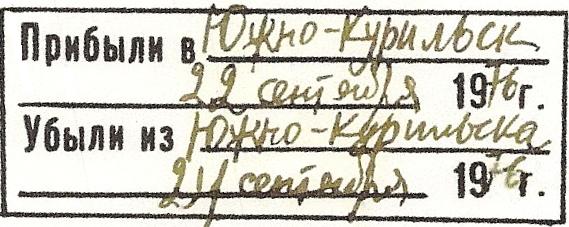 Прибыли в Южно-Курильск
22 сентября 1976 г.
Убыли из Южно-Курильска
24 сентября 1976 г.